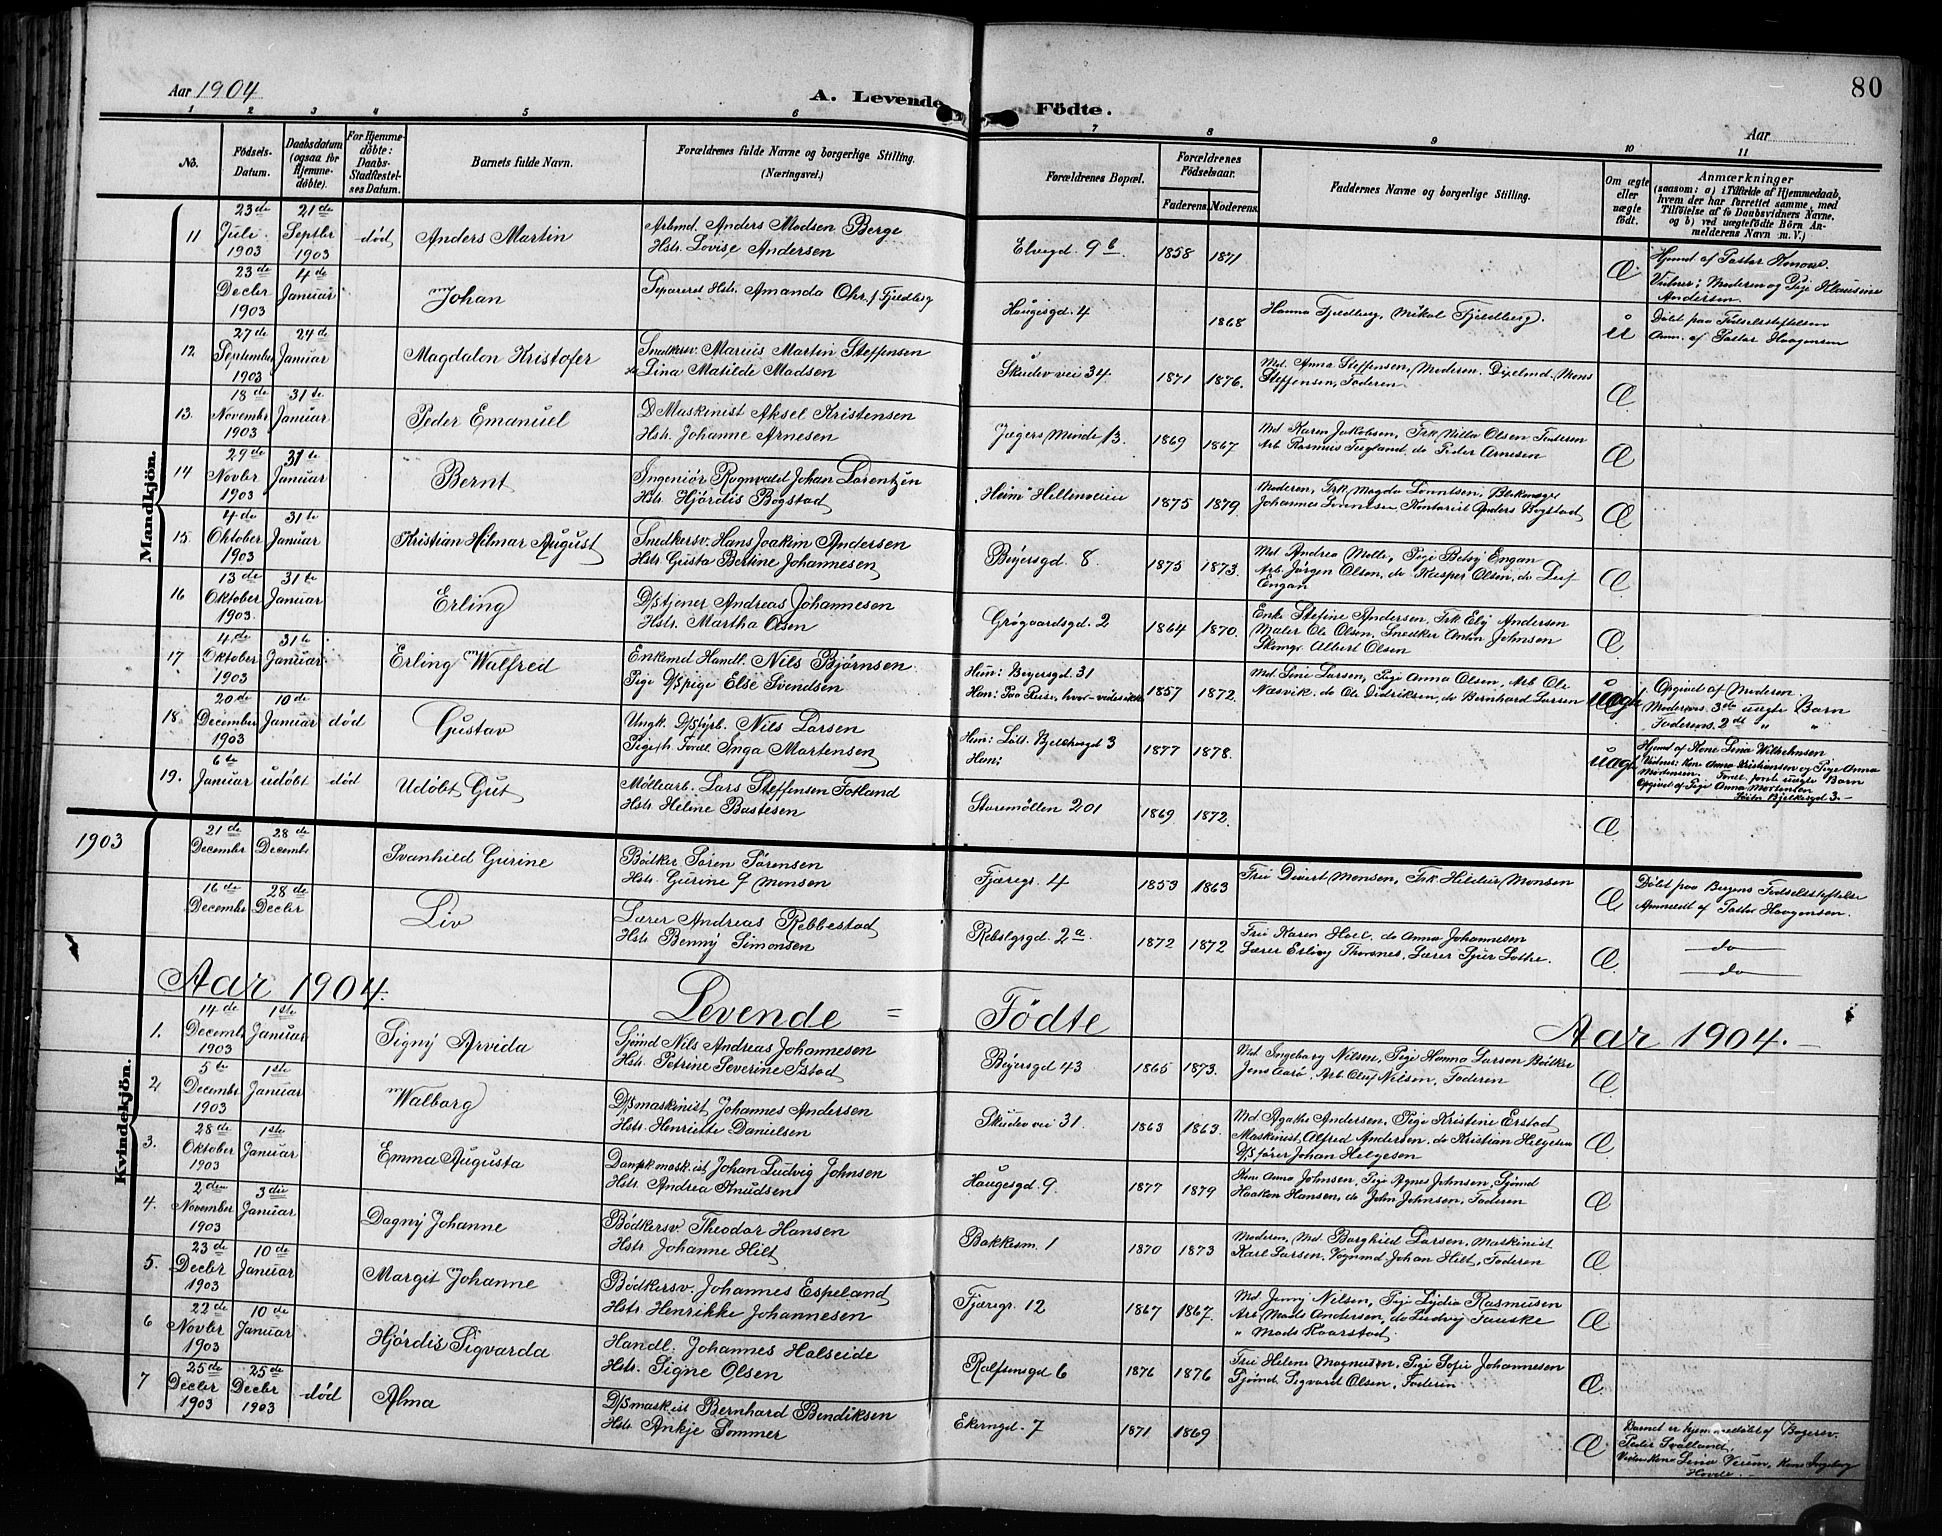 Aar 1904
A. Levende Födte.
80
Aar
1 2 3 4 5 6 7 8 9 10 11
No.
Födsels-Datum.
Daabsdatum (ogsaa for Hjemmedöbte).
For Hjemmedöbte: Daabs-Stadfæstelses Datum.
Barnets fulde Navn.
Forældrenes fulde Navne og borgerlige Stilling. (Næringsvei.)
Forældrenes Bopæl.
Forældrenes Födselsaar.
Faderens. Moderens.
Faddernes Navne og borgerlige Stilling.
Om ægte eller uægte födt.
Anmærkninger
(saasom: a) i Tilfælde af Hjemmedaab, hvem der har forrettet samme, med Tilföielse af to Daabsvidners Navne, og b) ved uægtefödte Börn Anmelderens Navn m. V.)
Mandkjön.
11 23de Juli 1903 21de Septbr 1903 död Anders Martin
Arbmd. Anders Madsen Berge
Hstr. Lovise Andersen
Elvegd 9b 1858 1871 Æ
Hjmd af Pastor
Vidner: Moderen og Pige Klausine Andersen.
23de Decbr 1903 4de Januar Johan
Separeret Hstr. Amanda Chr. f Fjeldberg
Haugesgd. 4 1868
Hanna Fjeldberg, Mikal Fjeldberg.
Döbt paa Födselsstiftelsen
Anm. af Pastor Haagensen
12 27de September 1903 24de Januar Magdalon Kristofer
Snedkersv. Marius Martin Steffensen
Lina Matilde Madsen
Skudev vei 34 1871 1876.
Md. Anna Steffensen, Moderen. Mons Steffensen, Faderen. Æ
13. 18de Novembr 1903 31te Januar Peder Emanuel
D Maskinist Aksel Kristensen
Hstr. Johanne Arnesen
Jægers Minde 13. 1869 1867
Md Karen Jakobsen, Frk Milla Olsen Faderen
Arb Rasmus Fugland, do Peder Arnesen Æ
14 29de Novbr 1903 31te Januar Bernt
Ingeniör Ragnvald Johan Lorentzen
Hstr. Hjördis Bogstad
"Heim" Helleveien 1875 1879.
Moderen, Frk Magda Lorentsen,
Johannes Lorentsen, Kontorist Anders Bogstad Æ
15 4de Oktober 1903 31te Januar Kristian Hilmar August
Snedkersv. Hans Joakim Andersen
Hstr. Gusta Bertine Johannesen
Beyersgd. 8. 1875 1873.
Md Andrea Molle, Pige Betsy Engan
Arb. Jörgen Olsen, do Kasper Olsen, do Leif Engan Æ
16 13de Oktober 1903. 31te Januar Erling
D/Stjener Andreas Johannesen
Hstr. Martha Olsen
Grögaardsgd. 2 1864 1870.
Enke Stefine Andersen, Frk Ely Andersen
Maler Ole Olsen, Snedker Anton Johnsen
Skomgr. Albert Olsen Æ
17 4de Oktober 1903 31te Januar Erling Walfred
Enkemd Handl. Nils Björnsen
Pige D/Spige Else Svendsen
Hun: Beyersgd. 31
Han: Paa Reise, hvor vides ikke 1857 1872.
Md. Lina Larsen, Pige Anna Olsen, Arb Ole
Næsvik, do Ole Didriksen, do Bernhard Larsen uægte
Opgivet af Moderen.
Moderens 3de uægte Barn
Faderens 2det " "
18. 20de December 1903 10de Januar död Gustav
Ungk. D/Styrb. Nils Larsen
Pige Inga Martensen
Hun: Bjelkesgd 3
Han: 1877 1878. uægte
Hjmd af Kone Lina Wilhelmsen
Vidner: Kone Anna Kristiansen og Pige Anna
Opgivet af Pige Anna Mortensen
Bjelkesgd 3.
19. 6te Januar udöbt död Udöbt Gut
Möllearb. Lars Steffensen Totland
Hstr. Helene Bastesen
Storemöllen 201 1869 1872. Æ
1903
21de Decembr 28de Decembr Svanhild Gurine
Bödker Sören Sörensen
Hstr. Gurine f Monsen
Fjæregr. 4 1853 1863
Fru Divert Monsen, Frk. Hildur Monsen Æ
Döbt paa Bergens Födselsstiftelse
Anmeldt af Pastor Haagensen.
16de Decembr 28de Decbr Liv
Lærer Andreas Rebbestad
Hstr Benny Simonsen
Rebslgrgd. 2a 1872 1872
Fru Karen Hoel, do Anna Johannesen
Lærer Erling Thorsnes, Lærer Sjur Lothe. Æ
do
do
Aar 1904. Levende = Födte Aar 1904.
Kvindekjön.
1. 14de Decembr 1903 1ste Januar Signy Arvida
Sjömd Nils Andreas Johannesen
Hstr. Petrine Severine Istad
Beyersgd 43 1865 1873.
Md Ingeborg Nilsen, Pige Hanna Larsen Bödker
Jens Aarö, Arb Oluf Nilsen, Faderen Æ
2 5te Decembr 1903 1ste Januar Walborg
D/Smaskinist Johannes Andersen
Hstr. Henriette Danielsen
Skudev vei 31. 1863 1863.
Md Agathe Andersen, Pige Kristine Erstad
Maskinist Alfred Andersen, do Kristian Helgesen
D/S förer Johan Helgesen Æ
3. 28de Oktober 1903 1ste Januar Emma Augusta
Dampsk mask ist Johan Ludvig Johnsen
Hstr. Andrea Knudsen
Haugesgd. 9. 1877 1879
Kone Anna Johnsen, Pige Agnes Johnsen, Sjömd
Haakon Hansen, do John Johnsen, Faderen Æ
4. 2den November 1903 3die Januar Dagny Johanne
Bödkersv. Theodor Hansen
Hstr. Johanne Hilt
Bakkesm. 1 1870 1873
Moderen, Md Borghild Larsen, Maskinist
Karl Larsen, Vognmd Johan Hilt, Faderen Æ
5. 23de Decbr 1903 10de Januar Margit Johanne
Bödkersv. Johannes Espeland
Hstr. Henrikke Johannesen
Fjæregr. 12 1867 1867.
Md Jenny Nilsen, Pige Lydia Rasmusen
Arb Mads Andersen, do Ludvig Tauske
" Mads Haarstad. Æ
6 22de Novbr 1903 10de Januar Hjördis Sigvarda
Handl. Johannes Halseide
Hstr. Signe Olsen
Ralfsensgd 6 1876 1876
Fru Helene Magnusen, Pige Sofie Johannesen
Sjömd Sigvard Olsen, Faderen Æ
7 25de Decbr 1903 25de Decbr 1903 död Alma
D/Smask ist Bernhard Bendiksen
Hstr. Ankje Sommer
Ekerngd. 7 1871 1869 Æ
Barnet er hjemmedöbt af Bagersv.
Peder Svalland,
Vidner Kone Lina Verum, Kone Ingeborg